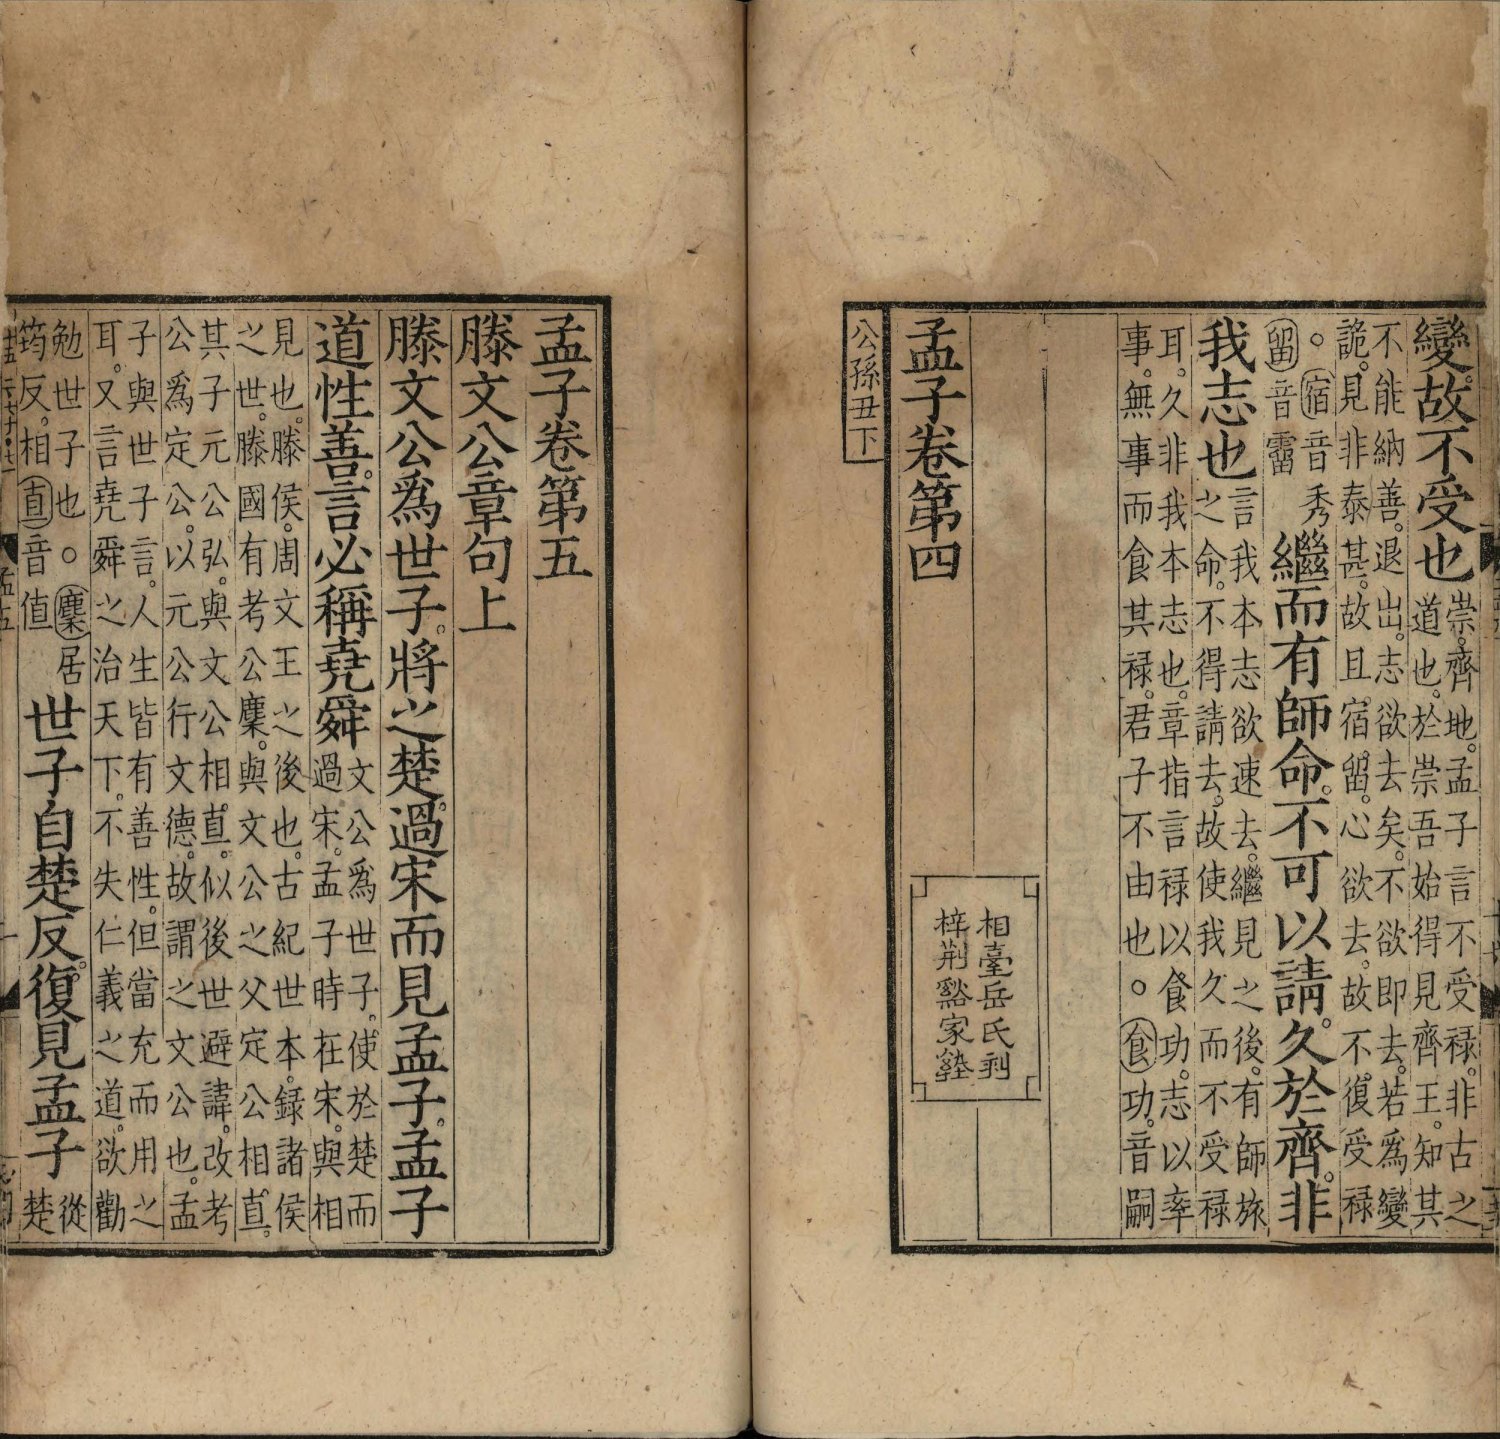 變故不受也
崇齊地孟子言不受祿非古之
道也於崇吾始得見齊王知其
不能納善退出志欲去矣不欲即去若為變
詭見非泰甚故且宿留心欲去故不復受祿
。宿音秀
留音霤
繼而有師命不可以請久於齊非
我志也
言我本志欲速去繼見之後有師旅
之命不得請去故使我久而不受祿
耳久非我本志也章指言祿以食功志以率
事無事而食其祿君子不由也。食功音嗣
孟子卷第四
相臺岳氏刻
梓荆谿家塾
公孫丑下
孟子卷第五
滕文公章句上
滕文公爲世子將之楚過宋而見孟子孟子
道性善言必稱堯舜
文公爲世子使於楚而
過宋孟子時在宋與相
見也滕侯周文王之後也古紀世本錄諸侯
之世滕國有考公麋與文公之父定公相直
其子元公弘與文公相直似後世避諱改考
公爲定公以元公行文德故謂之文公也孟
子與世子言人生皆有善性但當充而用之
耳又言堯舜之治天下不失仁義之道欲勸
勉世子也。麋居
筠反相直音值
世子自楚反復見孟子
從
楚
孟五